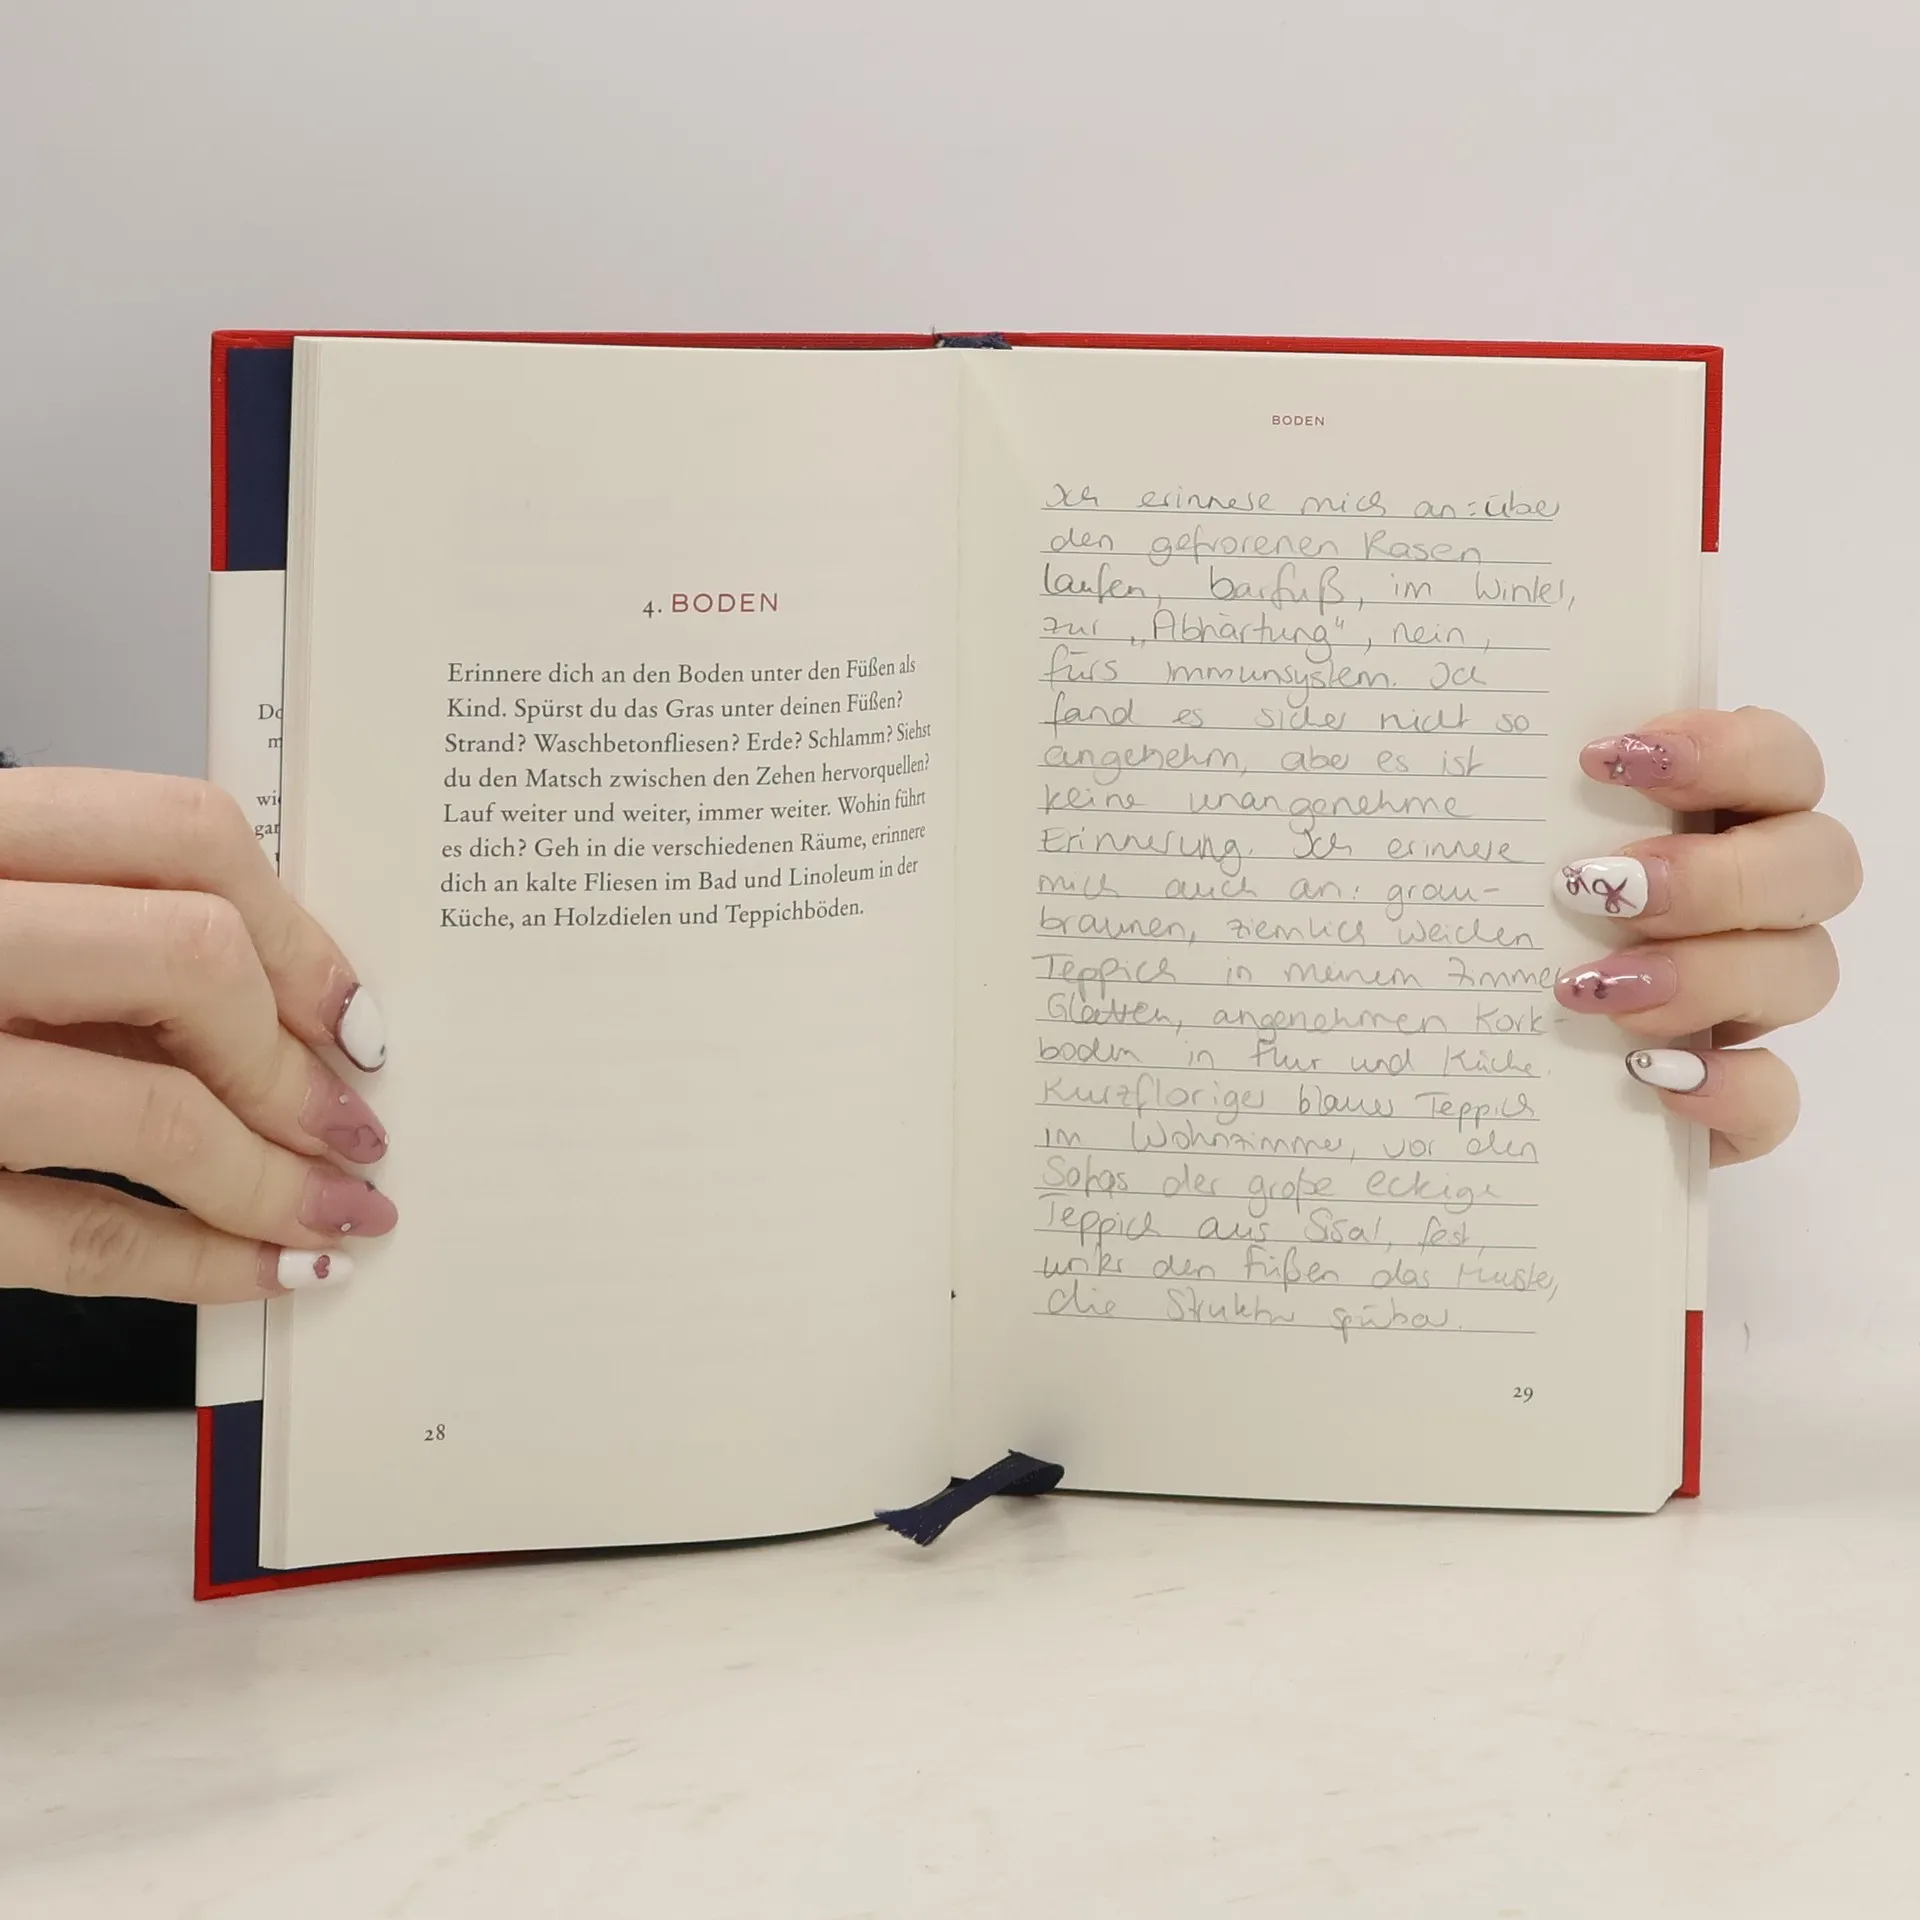 Do
m
wi
gar
4. BODEN
Erinnere dich an den Boden unter den Füßen als
Kind. Spürst du das Gras unter deinen Füßen?
Strand? Waschbetonfliesen? Erde? Schlamm? Siehst
du den Matsch zwischen den Zehen hervorquellen?
Lauf weiter und weiter, immer weiter. Wohin führt
es dich? Geh in die verschiedenen Räume, erinnere
dich an kalte Fliesen im Bad und Linoleum in der
Küche, an Holzdielen und Teppichböden.
28
BODEN
Ich erinnere mich an: über
den gefrorenen Rasen
laufen, barfuß, im Winter,
zur „Abhärtung“, nein,
fürs Immunsystem. Ich
fand es sicher nicht so
angenehm, aber es ist
keine unangenehme
Erinnerung. Ich erinnere
mich auch an: grau-
braunen, ziemlich weichen
Teppich in meinem Zimmer
Glatten, angenehmen Kork-
boden in Flur und Küche.
Kurzfloriger blauer Teppich
im Wohnzimmer, vor den
Sofas der große eckige
Teppich aus Sisal, fest,
unter den Füßen das Muster,
die Struktur spürbar.
29